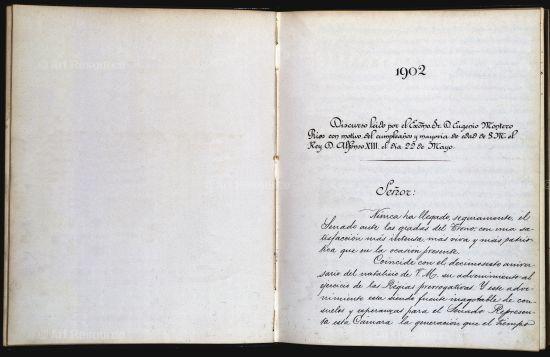 1902
Discurso leido por el Excmo. Sr. D. Eugenio Montero
Rios con motivo del cumpleaños y mayoria de edad de S. M. el
Rey D. Alfonso XIII, el dia 25 de Mayo.
Señor:
Nunca ha llegado, seguramente, el
Senado ante las gradas del Trono, con una sa-
tisfacción más intensa, mas viva y mas patrió-
tica que en la ocasion presente.
Coincide con el decimosesto aniver-
sario del natalicio de V. M. su advenimiento al
ejercicio de las Régias prerrogativas. Y este adve-
nimiento está siendo fuente inagotable de con-
suelos y esperanzas para el Senado. Represen-
ta esta Cámara la generación que el tiempo